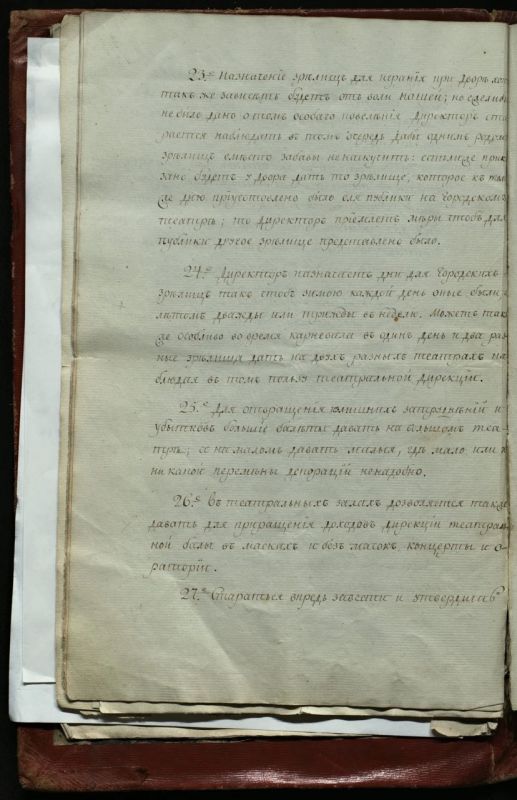 23.е Назначенїе зрѣлищъ для игранїя при Дворѣ
такъ же зависѣть будетъ отъ воли нашей; но
не было дано о томъ особаго повелѣнїя Директоръ
рается наблюдать въ томъ чередъ дабы однимъ родомъ
зрѣлищъ вмѣсто забавы не наскучить: естьлиже
зано будетъ у Двора дать то зрѣлище, которое къ
же дню прїуготовлено было для публики на Городскомъ
театрѣ; то Директоръ прїемлетъ мѣры чтобъ для
публики другое зрѣлище представлено было.
24.е Директоръ назначаетъ дни для Городскихъ
зрѣлищъ такъ чтобъ зимою каждой день оные были,
лѣтомъ дважды или трижды въ недѣлю. Можетъ
же особливо во время карневала въ одинъ день и два
ные зрѣлища дать на двухъ разныхъ театрахъ
блюдая въ томъ пользу театральной дирекцїи.
25.е Для отвращенїя излишнихъ затрудненїй и
убытковъ большїе балеты давать на большомъ
трѣ; а на маломъ давать малыя, гдѣ мало или
ни какой перемѣны декорацїй ненадобно.
26.е Въ театральныхъ залахъ дозволяется
давать для приращенїя доходовъ дирекцїи
ной балы въ маскахъ и безъ масокъ, концерты и о-
раторїи.
27.е Стараться впредь завести и утвердить